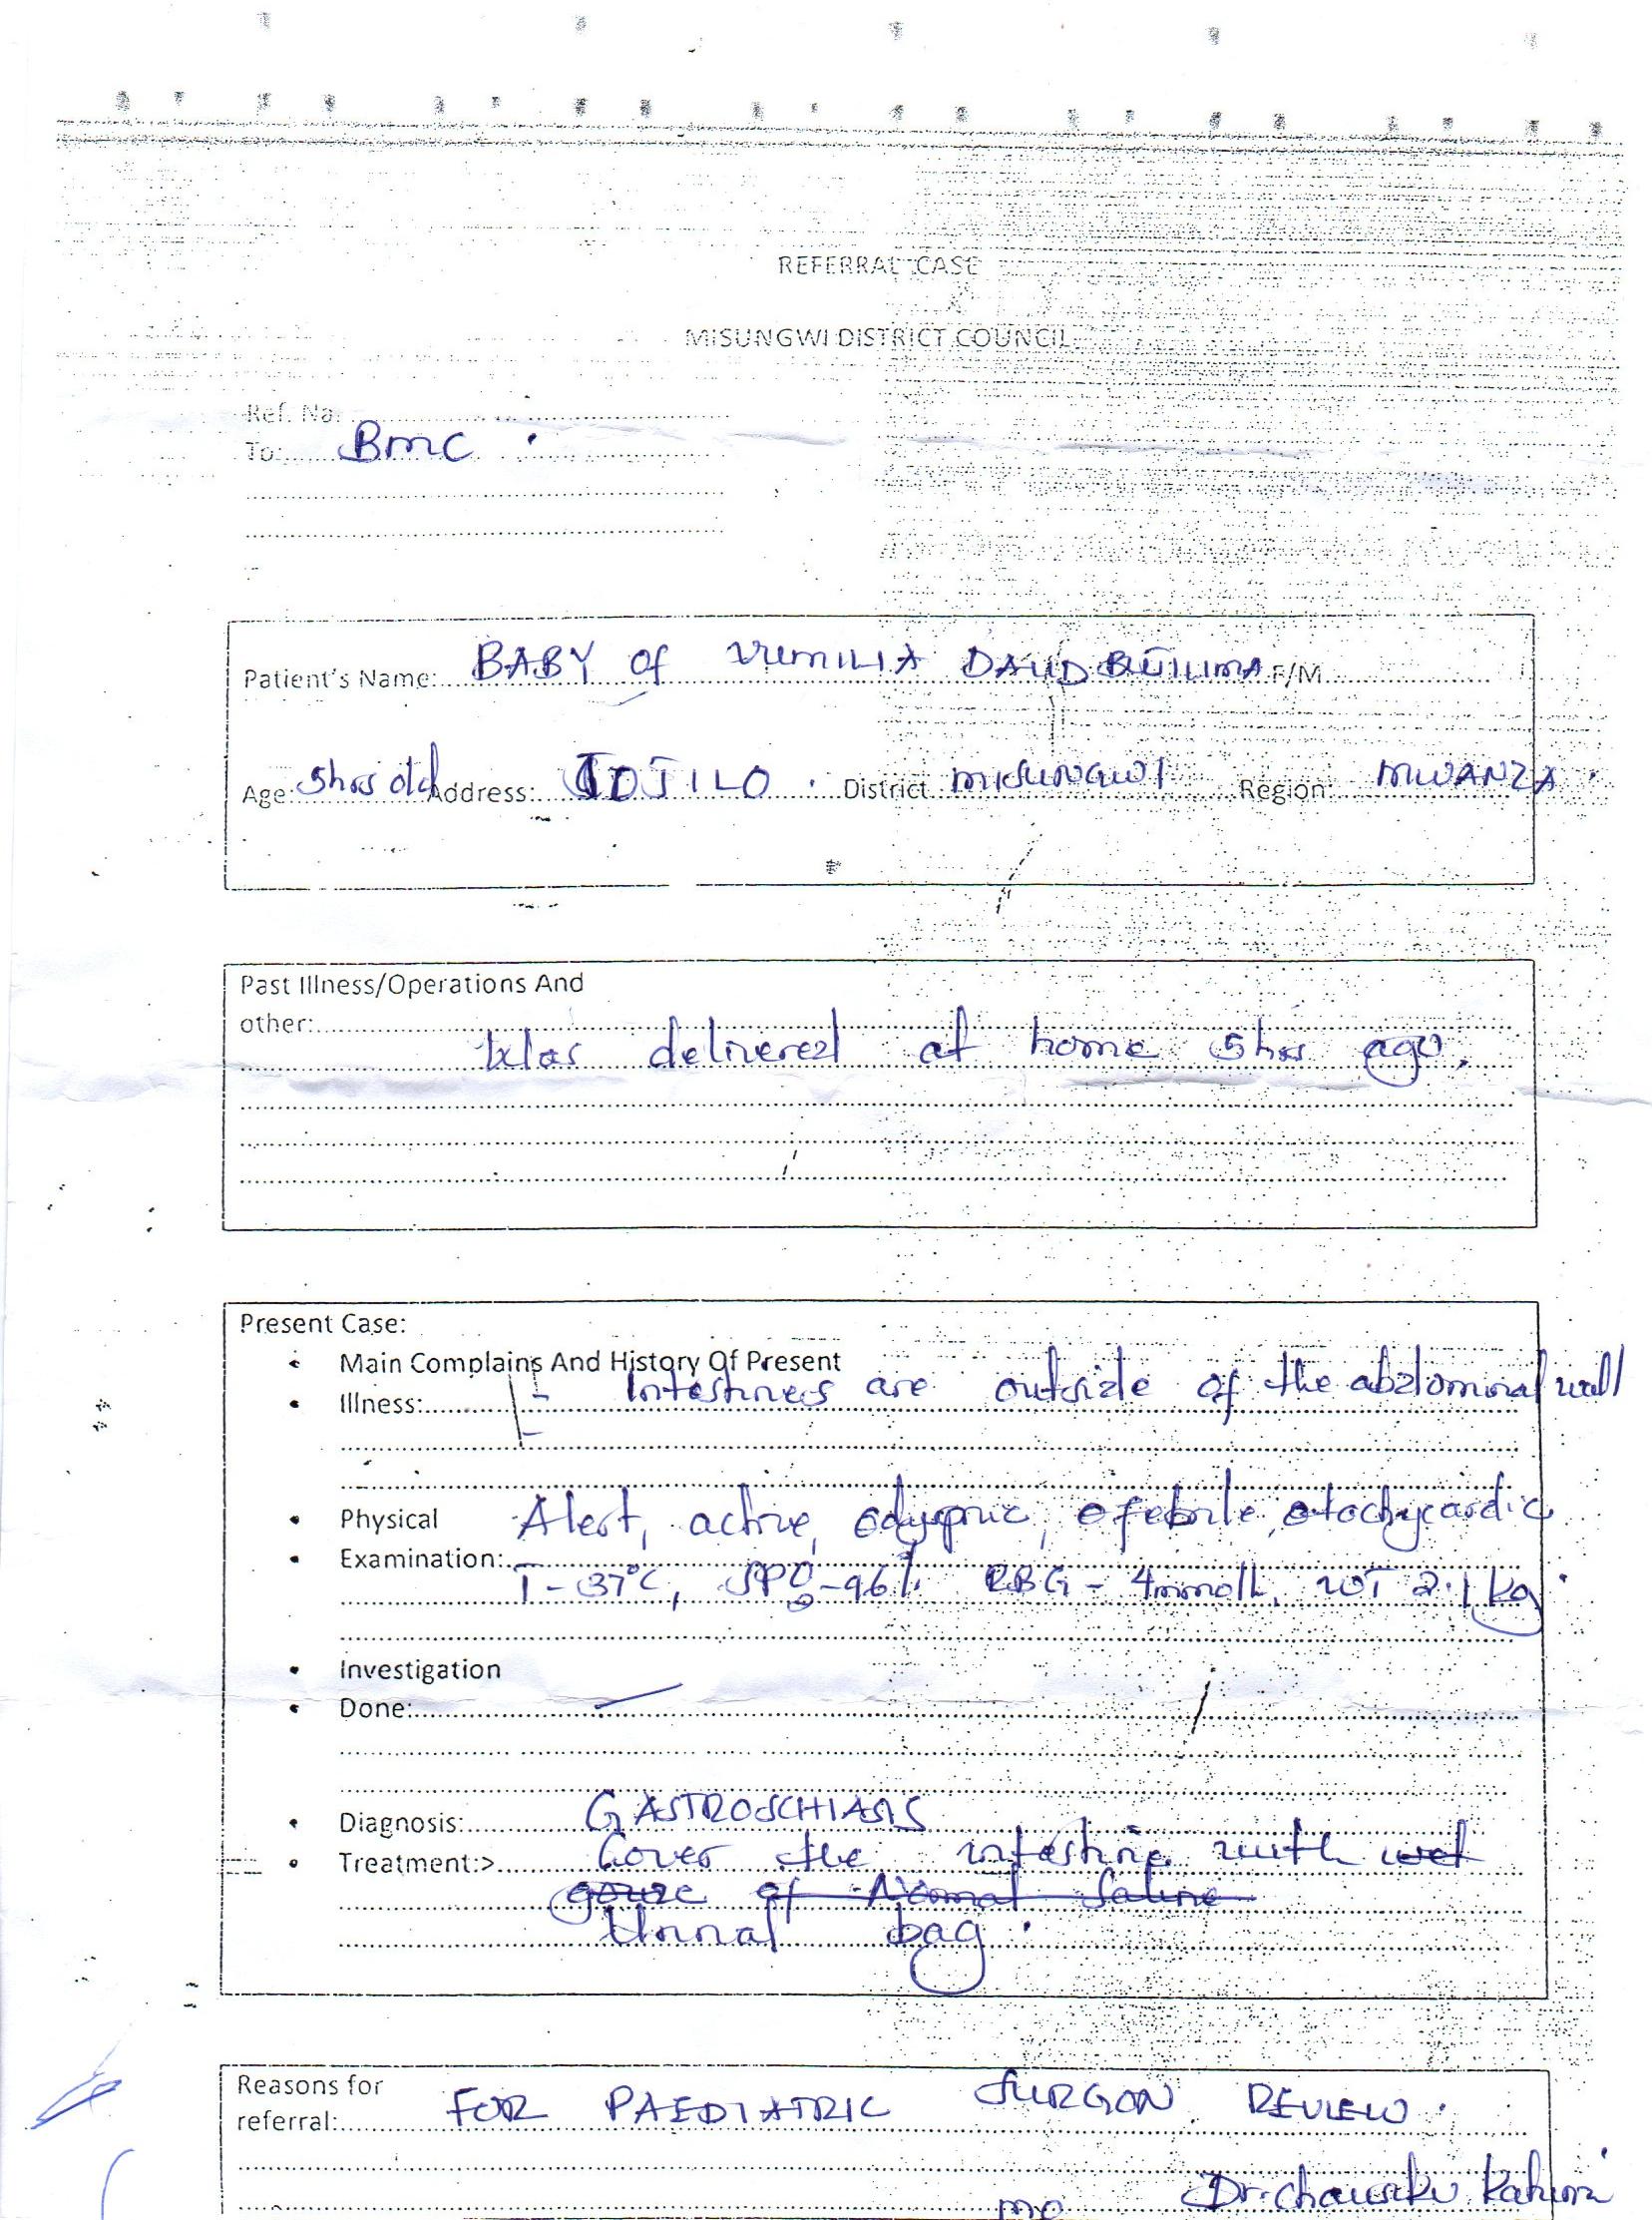 REFERRAL CASE
MISUNGWI DISTRICT COUNCIL
Ref. No:
To: BMC .
Patient's Name: BABY of DAUD F/M
Age: 5hrs old Address: District MISUNGWI Region: MWANZA .
Past Illness/Operations And
other:
Was delivered at home 5hrs ago.
Present Case:
• Main Complains And History Of Present
• Illness: - Intestines are outside of the abdominal wall
-
• Physical Alert, active,
• Examination:
T - 37°C, SPO2 - 96% RBG - 4mmol/L, WT 2.1kg .
• Investigation
• Done:
• Diagnosis: GASTROSCHIASIS
• Treatment:> Cover the intestine with wet
gauze of Normal Saline
Urinal bag .
Reasons for
referral: FOR PAEDIATRIC SURGON REVIEW .
Dr.
MO